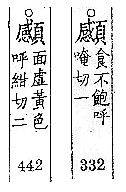 ○䫲食不飽呼
唵切一
332
○䫲面虛黃色
呼紺切二
442